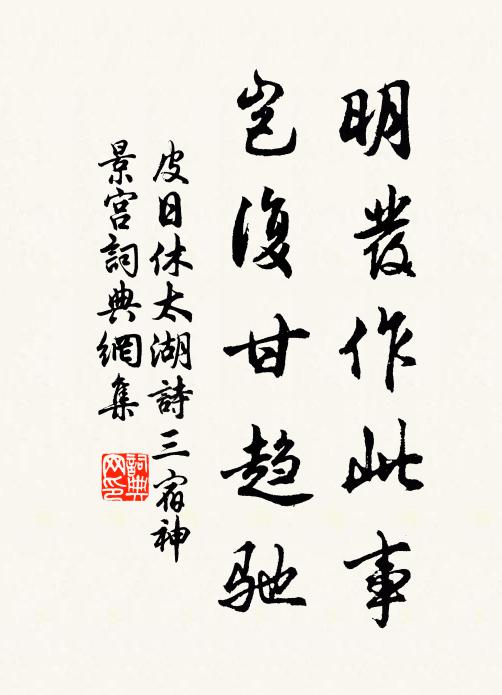 明發作此事
豈復甘趨馳
皮日休太湖詩三宿神
景宮詞典網集
詞典
网印